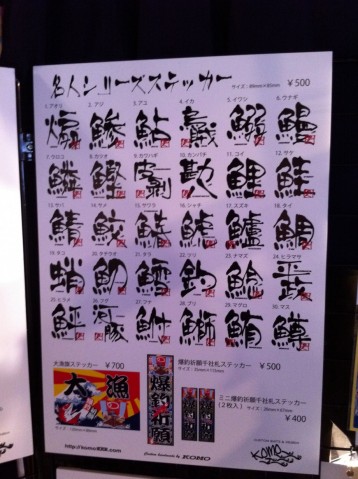 名人シリーズステッカー ¥500
1.アオリ 2.アジ 3.アユ 4.イカ 5.イワシ 6.ウナギ
鯵 鮎 烏賊 鰯 鰻
7.ウロコ 8.カツオ 9.カワハギ 10.カンパチ 11.コイ 12.サケ
鱗 鰹 皮剥 勘八 鯉 鮭
13.サバ 14.サメ 15.サワラ 16.シャチ 17.スズキ 18.タイ
鯖 鮫 鰆 鯱 鱸 鯛
19.タコ 20.タチウオ 21.タラ 22.ツリ 23.ナマズ 24.ヒラマサ
蛸 魛 鱈 釣 鯰 平政
25.ヒラメ 26.フグ 27.フナ 28.ブリ 29.マグロ 30.マス
鮃 河豚 鮒 鰤 鮪 鱒
大漁旗ステッカー ¥700
大漁
爆釣祈願千社札ステッカー ¥500
爆釣祈願
ミニ爆釣祈願千社札ステッカー
(2枚入) ¥400
KOMO